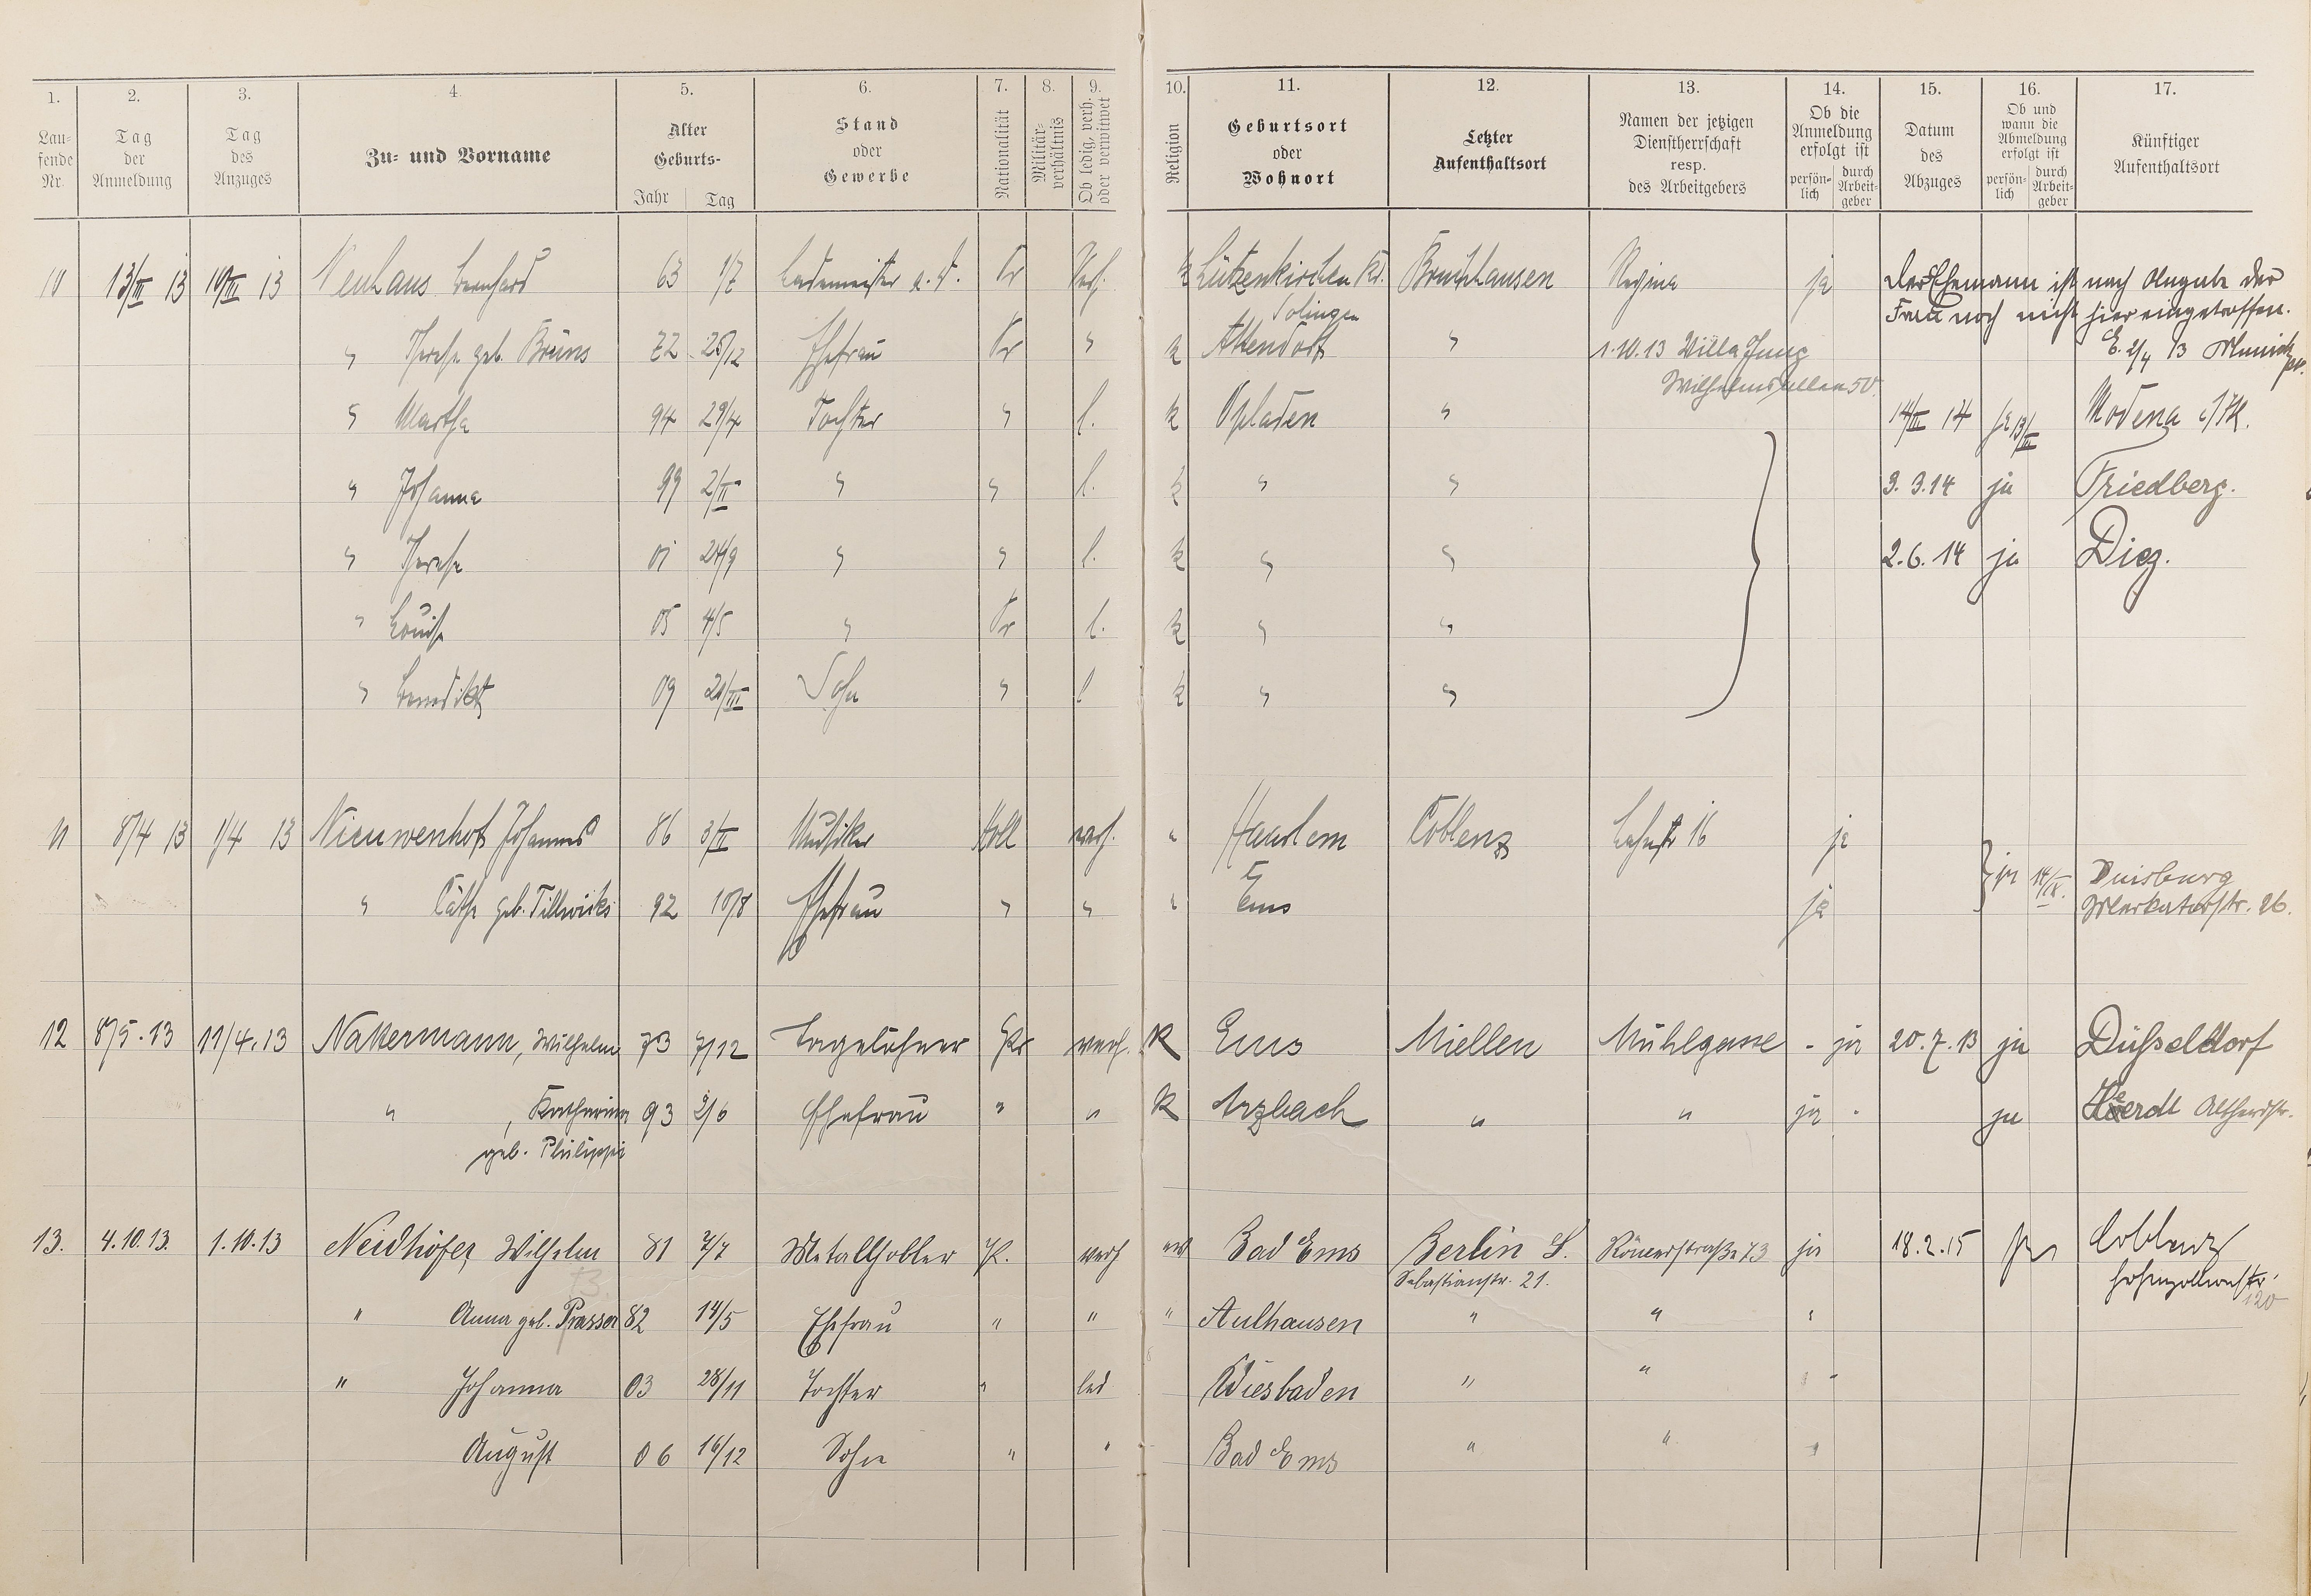 1. 2. 3. 4. 5. 6. 7. 8. 9. 10. 11. 12. 13. 14. 15. 16. 17.
Lau-
fende
Nr.
Tag
der
Anmeldung
Tag
des
Anzuges
Zu- und Vorname
Alter
Geburts-
Jahr Tag
Stand
oder
Gewerbe
Nationalität
Militär-
verhältnis
Ob ledig, verh.
oder verwitwet
Religion
Geburtsort
oder
Wohnort
Letzter
Aufenthaltsort
Namen der jetzigen
Dienstherrschaft
resp.
des Arbeitgebers
Ob die
Anmeldung
erfolgt ist
persön-
lich
durch
Arbeit-
geber
Datum
des
Abzuges
Ob und
wann die
Abmeldung
erfolgt ist
persön-
lich
durch
Arbeit-
geber
Künftiger
Aufenthaltsort
10 13/III 13 10/III 13 Neuhaus Bernhard 63 1/7 Lademeister a. D. Pr Verh. k Lützenkirchen Kr. Bruchhausen Regina ja Der Ehemann ist nach Angabe der
Solingen Frau noch nicht hier eingetroffen.
" Therese geb. Brüns 72 25/12 Ehefrau Pr " k Attendorf " 1.10.13 Villa Jung E. 2/4 13
Wilhelmsallee 50.
" Martha 94 29/4 Tochter " l. k Opladen " 14/III 14 ja 13/III Modena
" Johanna 99 2/II " " l. k " " 3.3.14 ja Friedberg.
" Therese 01 24/9 " " l. k " " 2.6.14 ja Diez.
" Louise 05 4/5 " Pr l. k " "
" Benedikt 09 21/III Sohn " l k " "
11 8/4 13 1/4 13 Nieuwenhof Johannes 86 3/II Musiker Holl verh. " Haarlem Coblenz Lahnstr 16 ja
ja 14/IX. Duisburg
" Cäthe geb. Tillwicks 92 10/8 Ehefrau " " " Ems ja Merkatorstr. 26.
12 8/5.13 11/4.13 Nattermann, Wilhelm 73 7/12 Tagelöhner Pr verh. K Ems Miellen Mühlgasse - ja 20.7.13 ja Düsseldorf
" , Katharina 93 2/6 Ehefrau " " K Arzbach " " ja ja Heerdt
geb. Philippi
13. 4.10.13. 1.10.13 Neidhöfer Wilhelm 81 7/7 Metallhobler P. verh ev Bad Ems Berlin S. Römerstraße 73 ja 18.2.15 ja Coblenz
Sebastianstr. 21. Hohenzollernstr.
120
" Anna geb. Prasser 82 14/5 Ehefrau " " " Aulhausen " " "
" Johanna 03 28/11 Tochter " led Wiesbaden " "
August 06 16/12 Sohn " " Bad Ems " " "